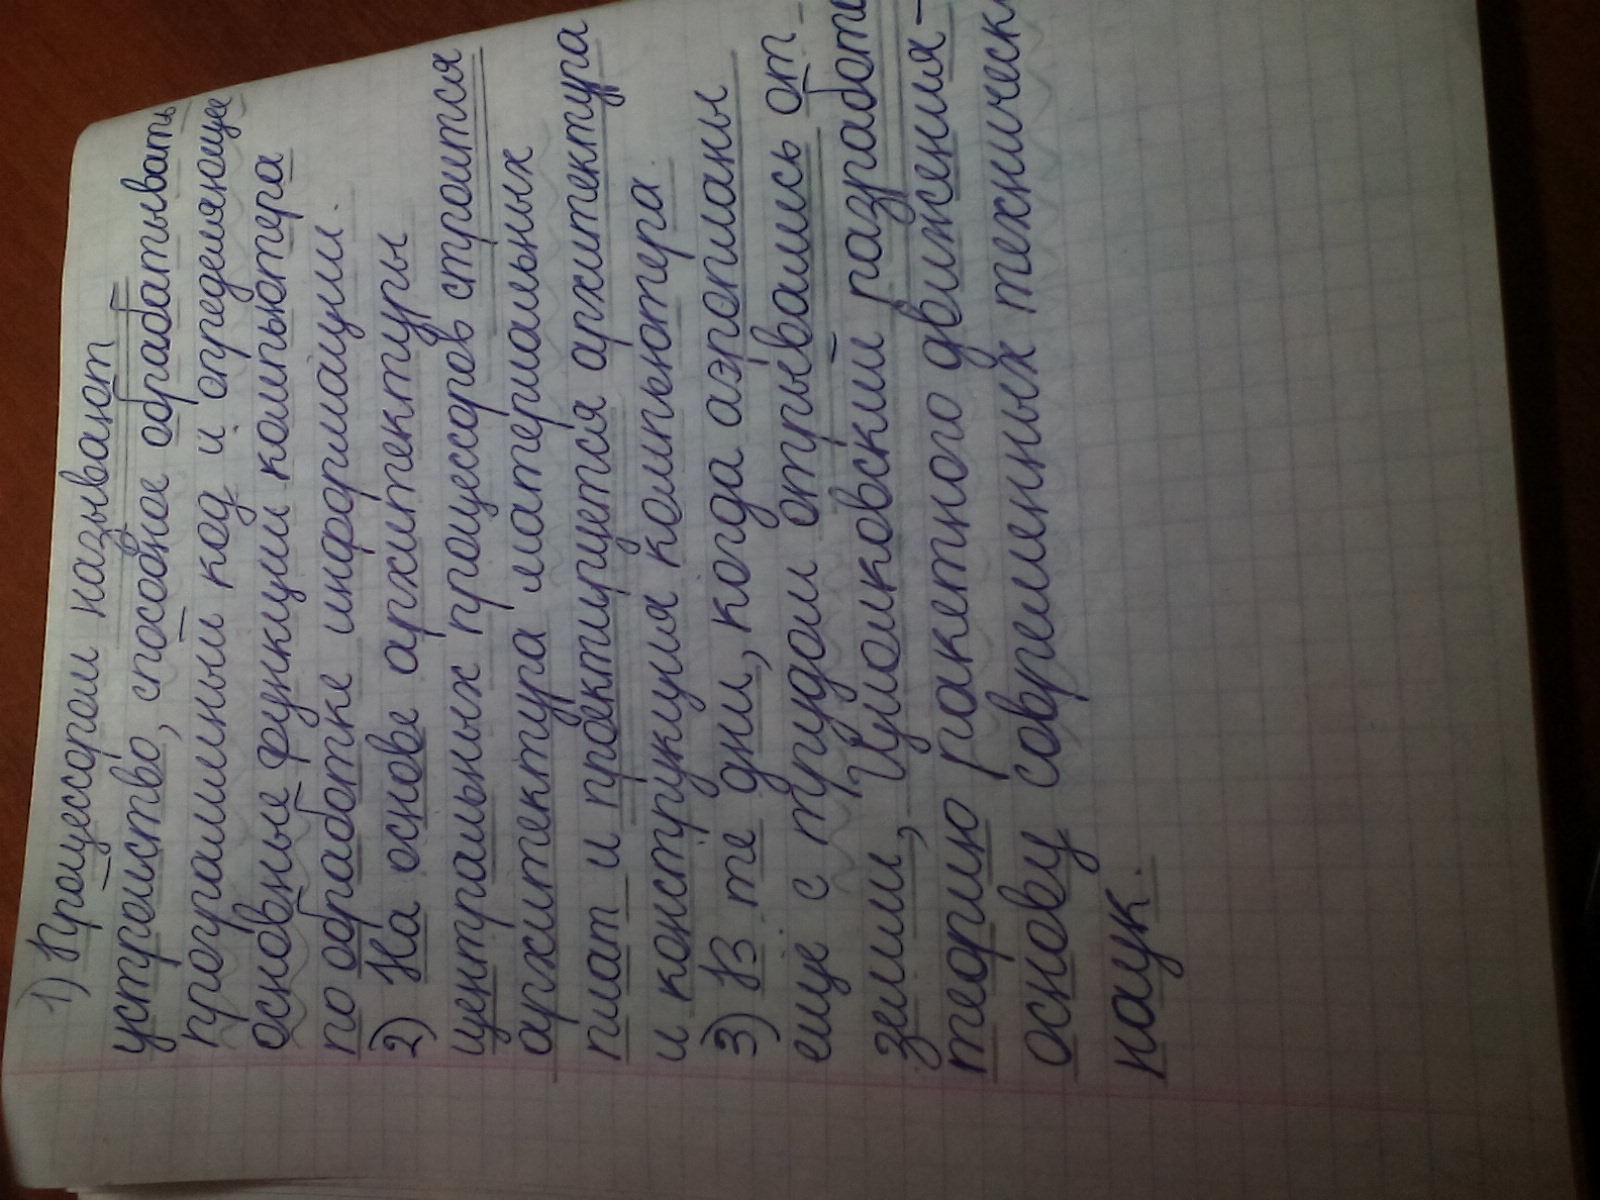 1) Процессором называют
устройство, способное обрабатывать
программный код и определяющее
основные функции компьютера
по обработке информации.
2) На основе архитектуры
центральных процессоров строится
архитектура материальных
плат и проектируется архитектура
и конструкция компьютера.
3) В те дни, когда аэропланы
еще с трудом отрывались от
земли, Циолковский разработал
теорию ракетного движения –
основу современных технических
наук.